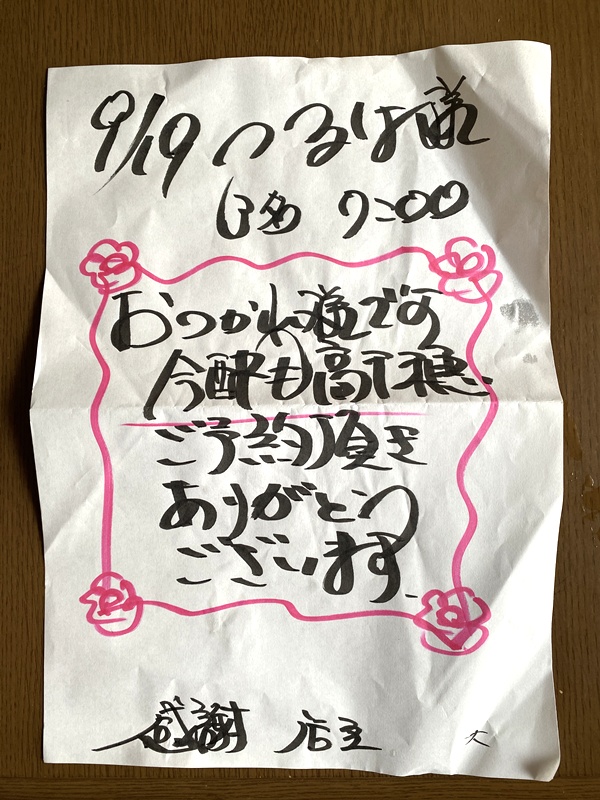 9/19 つるは様
6名 7:00
おつかれ様です
今酔も高千穂
ご予約頂き
ありがとう
ございます
感謝 店主